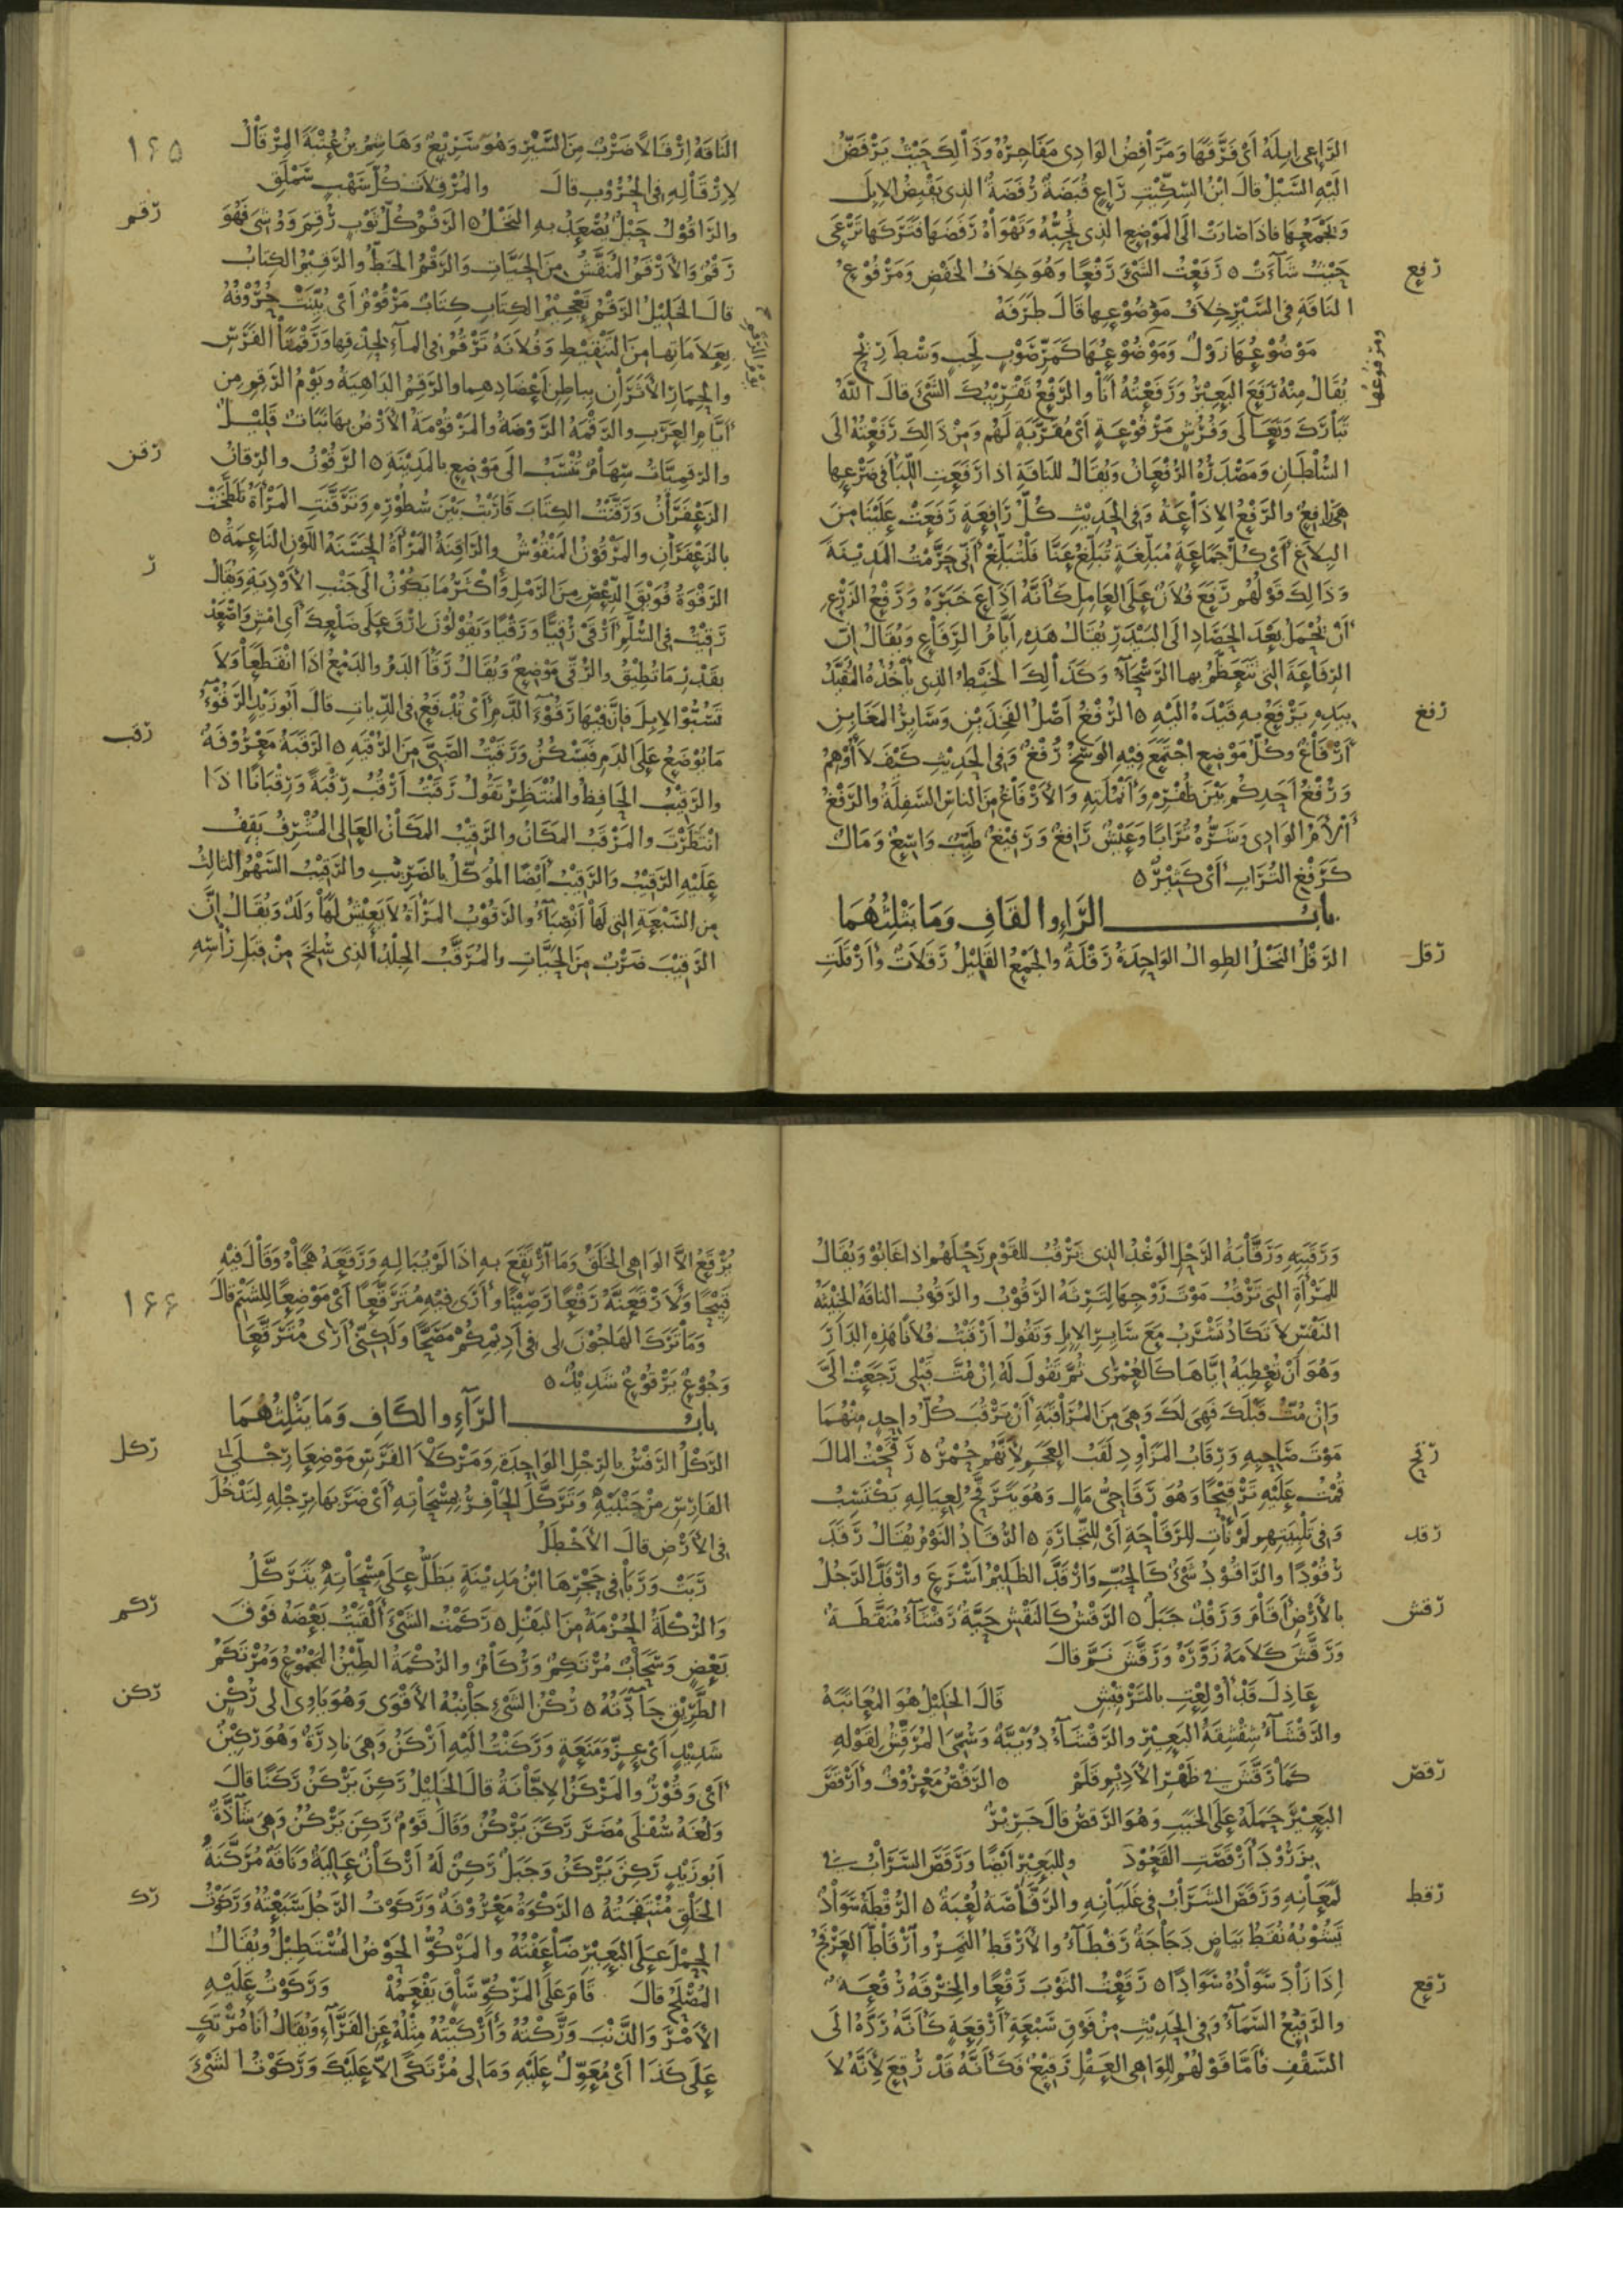 الرَّاعي اِبِلَهُ أي فَرَّقَها وَمَرَافِضُ الوَادي مَفَاجِرُهُ وَذَالِكَ حَيْثُ يَرْفَضُّ
اليْهِ السَّيْلُ قالَ ابْنُ السِّكِّيْتِ رَاعٍ قُبَضَةٌ رُفَضَةٌ الذي يَقْبِضُ الاِبِلَ
وَيَجْمَعُهَا فاذَا صَارَتْ الَى المَوْضِعِ الذي تُحِبُّهُ وَتَهْوَاهُ رَفَضَهَا فَتَرَكَها تَرْعَى
رفع
حَيْثُ شَآءَتْ ٥ رَفَعْتُ الشَّئَ رَفْعًا وَهُوَ خِلَافُ الخَفْضِ وَمَرْفُوْعُ
النَاقَةِ في السَّيْرِ خِلَافُ مَوْضُوْعِها قَالَ طَرَفَهُ
مَوْضُوْعُهَا زَوْلٌ وَمَوْضُوْعُهَا كَمَرِّ صَوْبٍ لَجِبٍ وَسْطَ رِيْحِ
ومرفوعها
يُقَالُ مِنْهُ رَفَعَ البَعِيْرُ وَرَفَعْتُهُ أنَا والرَّفْعُ تَقْرِيْبُكَ الشَّئَ قالَ اللهُ
تَبَارَكَ وَتَعَالَى وَفُرُشٍ مَرْفُوْعَةٍ أيْ مُقَرَّبَةٍ لَهُم وَمِنْ ذَالِكَ رَفَعْتُهُ الَى
السُّلْطَانِ وَمَصْدَرُهُ الرُفْعَانُ وَيُقَالُ للنَاقَةِ اذا رَفَعَتِ اللِّبَأَ في ضَرْعِها
هِيَ رَافِعٌ والرَّفْعُ الاِذَاعَةُ وَفي الحَدِيْثِ كُلُّ رَافِعَةٍ رَفَعَتْ عَلَيْنَا مِنَ
البِلَاغِ أَيْ كُلُّ جَمَاعَةٍ مُبَلِّغَةٍ تُبَلِّغُ عَنَّا فَلْتُبَلِّغْ أنّي حَرَّمْتُ المَدِيْنَةَ
وَذَالِكَ قَوْلُهُم رَفَعَ فُلَانٌ عَلَى العَامِلِ كَأنَّهُ اَذَاعَ خَبَرَهُ وَرَفْعُ الزَرْعِ
أنْ يُحْمَلَ بَعْدَ الحَصَادِ الَى البَيْدَرِ يُقَالُ هَذِهِ أيَّامُ الرَّفَاعِ وَيُقَالُ انّ
الرِفَاعَةَ التي تَتَعَظَّمُ بها الرَّسْحَآءُ وَكَذَالِكَ الخَيْطُ الذي يَأخُذُهُ المُقَيَّدُ
رفغ
بِيَدِهِ يَرْفَعُ بِهِ قَيْدَهُ اليْهِ ٥ الرُفْغُ أصْلُ الفَخِذَيْنِ وَسَايِرُ المَغَابِنِ
أَرْفَاغٌ وكُلُّ مَوْضِعٍ اجْتَمَعَ فِيْهِ الوَسَخُ رُفْغٌ وَفي الحَدِيْثِ كَيْفَ لَا أُوْهِمُ
وَرُفْغُ أَحَدِكُم بَيْنَ ظُفْرِهِ وَأَنْمُلَتِهِ وَالأَرْفَاغُ مِنَ الناسِ السَّفِلَةُ والرَّفْغُ
أَلأَمُ الوَادي وَشَرُّهُ تُرَابًا وَعَيْشٌ رَافِغٌ وَرَفِيْغٌ طَيِّبٌ وَاسِعٌ وَمَالٌ
كَرَفْغِ التُرَابِ أيْ كَثِيْرٌ ٥
بابُ الرَّاءِ والقَافِ وَمَا يَثْلِثُهُمَا
رقل
الرَّقْلُ النَخْلُ الطِوالُ الوَاحِدَةُ رَقْلَةٌ والجَمْعُ القَلِيْلُ رَقَلَاتٌ وأَرْقَلَتِ
١٦٥
النَاقَةُ اِرْقَالًا ضَرْبٌ مِنَ السَّيْرِ وَهُوَ سَرِيْعٌ وَهَاشِمُ بنُ عُتْبَةَ المِرْقَالُ
لِاِرْقَالِهِ في الحُرُوْبِ قالَ والمُرْقِلَاتِ كُلَّ سَهْبٍ سَمْلَقِ
رقم
والرَّاقُوْلُ حَبْلٌ يُصْعَدُ بِهِ النَخْلُ ٥ الرَقْمُ كُلُّ ثَوْبٍ رُقِمَ وَوُشِيَ فَهُوَ
رَقْمٌ وَالأَرْقَمُ المُنَقَّشُ مِنَ الحَيَّاتِ وَالرَقْمُ الخَطُّ والرَّقِيْمُ الكِتَابُ
قالَ الخَلِيْلُ الرَقْمُ تَعْجِيْمُ الكِتَابِ كِتَابٌ مَرْقُوْمٌ أَيْ بُيِّنَتْ حُرُوْفُهُ
بِعَلَامَاتِهِا مِنَ التَنْقِيْطِ وَفُلَانَةُ تَرْقُمُ في المآءِ لِحِذْقِها وَرَقْمَتَا الفَرَسِ
والحِمَارِ الأَثَرَانِ بِبَاطِنِ أَعْضَادِهِما والرَقِمُ الدَاهِيَةُ وَيَوْمُ الرَقَمِ مِن
أيَّامِ العَرَبِ والرَقْمَةُ الرَّوْضَةُ والمَرْقُوْمَةُ الأَرْضُ بِهَا نَبَاتٌ قَلِيْلٌ
رقن
والرَقَمِيَّاتُ سِهَامٌ تُنْسَبُ الَى مَوْضِعٍ بالمَدِيْنَةِ ٥ الرَّقُوْنُ والرِّقانُ
الزَعْفَرَانُ وَرَقَّنْتُ الكِتَابَ قَارَنْتُ بَيْنَ سُطُوْرِهِ وَتَرَقَّنَتِ المَرْأَةُ تَلَطَّخَتْ
بالزَعْفَرَانِ والمَرْقُوْنُ المَنْقُوْشُ والرَّاقِنَةُ المَرْأَةُ الحَسَنَةُ اللَّوْنِ الناعِمَةُ ٥
ر
الرَقْوَةُ فُوَيْقَ الدِّعْصِ مِنَ الرَمْلِ وَأَكْثَرُ مَا يَكُوْنُ الَى جَنْبِ الأَوْدِيَةِ وَيُقَالُ
رَقِيْتُ في السُّلَّمِ أَرْقَى رُقِيًّا وَرَقْيًا وَيَقُوْلُوْنَ اِرْقَ عَلَى ضَلْعِكَ أي امْشِ وَاصْعَدْ
بِقَدْرِ مَا تُطِيْقُ والرُقَيُّ مَوْضِعٌ وَيُقَالُ رَقَأَ الدَمُ والدَمْعُ اذَا انْقَطَعَا وَلَا
تَسُبُّوْا الاِبِلَ فَاِنَّ فِيْهَا رَقُوْءَ الدَّمِ أيْ تُدْفَعُ في الدِّيَاتِ قالَ أبُوْ زَيْدٍ الرَّقُوْءُ
رقب
مَا يُوْضَعُ عَلَى الدَمِ فَيَسْكُنُ وَرَقَيْتُ الصَّبِيَّ مِنَ الرُقْيَةِ ٥ الرَقَبَةُ مَعْرُوْفَةٌ
والرَقِيْبُ الحَافِظُ والمُنْتَظِرُ تَقُوْلُ رَقَبْتُ أرْقُبُ رِقْبَةً وَرِقْبَانًا اذَا
انْتَظَرْتَ والمَرْقَبُ المَكَانُ والرَّقِيْبُ المَكَانُ العَالي المُشْرِفُ يَقِفُ
عَلَيْهِ الرَقِيْبُ وَالرَقِيْبُ أَيْضًا المُوَكَّلُ بالضَرِيْبِ والرَقِيْبُ السَهْمُ الثالِثُ
مِن السَّبْعَةِ التي لَهَا أَنْصِبَآءُ والرَقُوْبُ المَرْأَةُ لَا يَعِيْشُ لَهَا وَلَدٌ وَيُقَالُ انَّ
الرَّقِيْبَ ضَرْبٌ مِنَ الحَيَّاتِ والمُرَقَّبُ الجِلْدُ الذي سُلِخَ مِنْ قِبَلِ رَأْسِهِ
وَرَقَبَتِهِ وَرَقَّابَةُ الرَّحْلِ الوَغْدُ الذي يَرْقُبُ للقَوْمِ رَحْلَهُم اذا غَابُوْا وَيُقَالُ
للمَرْأَةِ التي تَرْقُبُ مَوْتَ زَوْجِهَا لِتَرِثَهُ الرَقُوْبُ والرَقُوْبُ الناقَةُ الخَبِيْثَةُ
النَفْسِ لَا تَكَادُ تَشْرَبُ مَعَ سَايِرِ الاِبِلِ وَتَقُوْلُ أَرْقَبْتُ فُلَانًا هَذِهِ الدَارَ
وَهُوَ أَنْ تُعْطِيَهُ ايَّاهَا كَالعُمْرَى ثُمَّ تَقُوْلَ لَهُ اِنْ مُتَّ قَبْلي رَجَعَتْ الَيَّ
وَاِنْ مُتُّ قَبْلَكَ فَهِيَ لَكَ وَهِيَ مِنَ المُرَاقَبَةِ أنْ يَرْقُبَ كُلُّ واحِدٍ مِنْهُمَا
رقح
مَوْتَ صَاحِبِهِ وَرِقَابُ المَزَاوِدِ لَقَبُ العَجَمِ لِأَنَّهُم حُمْرٌ ٥ رَقَّحْتُ المَالَ
قُمْتُ عَلَيْهِ تَرْقِيْحًا وَهُوَ رَقَاحِيُّ مَالٍ وَهُوَ يَتَرَقَّحُ لِعِيَالِهِ يَكْتَسِبُ
رقد
وَفي تَلْبِيَتِهِم لَمْ نَأْتِ لِلرَّقَاحَةِ أيْ لِلتِّجَارَةِ ٥ الرُّقَادُ النَوْمُ يُقَالُ رَقَدَ
رُقُوْدًا والرَّاقُوْدُ شَئٌ كَالحُبِّ وَارْقَدَّ الظَلِيْمُ اَسْرَعَ وَارْقَدَّ الرَجُلُ
رقش
بالأَرْضِ أَقَامَ وَرَقْدٌ جَبَلٌ ٥ الرَقْشُ كَالنَقْشِ حَيَّةٌ رَقْشَآءُ مُنَقَّطَةٌ
وَرَقَّشَ كَلَامَهُ زَوَّرَهُ وَرَقَّشَ نَمَّ قالَ
عَاذِلَ قَدْ أُوْلِعْتِ بالتَرْقِيْشِ قَالَ الخَلِيْلُ هُوَ المُعَاتَبَةُ
والرَقْشَآءُ شِقْشِقَةُ البَعِيْرِ والرَقْشَآءُ دُوَيْبَّةٌ وَسُمِّيَ المُرَقِّشُ لِقَوْلِهِ
رقص
كَمَا رَقَّشَ في ظَهْرِ الأَدِيْمِ قَلَمْ ٥ الرَّقْصُ مَعْرُوْفٌ وأَرْقَصَ
البَعِيْرَ حَمَلَهُ عَلَى الخَبَبِ وَهُوَ الرَقصُ قالَ جَرِيْرٌ
بِزَرُوْدَ أَرْقَصَتِ القَعُوْدَ وللبَعِيْرِ اَيْضًا وَرَقَصَ السَّرَابُ في
رقط
لَمَعَانِهِ وَرَقَصَ الشَرَابُ في غَلَيَانِهِ والرَّقَّاصَةُ لُعْبَةٌ ٥ الرُّقْطَةُ سَوَادٌ
يَشُوْبُهُ نُقَطُ بَيَاضٍ دَجَاجَةٌ رَقْطَآءُ والأَرْقَطُ النَمِرُ وأرْقَاطَّ العَرْفَجُ
رقع
اِذَا زَادَ سَوَادُهُ سَوَادًا ٥ رَقَعْتُ الثَوْبَ رَقْعًا والخِرْقَةُ رُقْعَةٌ
والرَّقِيْعُ السَّمَآءُ وَفي الحَدِيْثِ مِنْ فَوْقِ سَبْعَةِ أَرْقِعَةٍ كَأنَّهُ رَدَّهُ الَى
السَّقْفِ فَأمَّا قَوْلُهُم لِلوَاهي العَقْلِ رَقِيْعٌ فَكَأنَّهُ قَدْ رُقِعَ لِأنَّهُ لَا
١٦٦
يُرْقَعُ الَّا الوَاهي الخَلَقُ وَمَا أرْتَقِعُ بِهِ اِذَا لَمْ يُبَالِهِ وَرَقَعَهُ هَجَاهُ وَقَالَ فِيْهِ
قَبِيْحًا وَلَأرْقَعَنَّهُ رَقْعًا رَصِيْنًا وأَرَى فِيْهِ مُتَرَقَّعًا أَيْ مَوْضِعًا للشَتْمِ قالَ
وَمَا تَرَكَ الهَاجُوْنَ لي في أَدِيْمِكُمْ مَصَحًّا وَلَكِنّي أَرَى مُتَرَقَّعَا
وَجُوْعٌ يَرْقُوْعٌ شَدِيْدٌ ٥
بابُ الرَّآءِ والكَافِ وَمَا يَثْلِثُهُمَا
ركل
الرَكْلُ الرَفْسُ بالرِجْلِ الوَاحِدَةِ وَمَرْكَلَا الفَرَسِ مَوْضِعَا رِجْلَيِ
الفَارِسِ مِنْ جَنْبَيْهِ وَتَرَكَّلَ الحَافِرُ بِمِسْحَاتِهِ أَيْ ضَرَبَهَا بِرِجْلِهِ لِتَدْخُلَ
في الأَرْضِ قالَ الأَخْطَلُ
رَبَتْ وَرَبَا في حَجْرِهَا ابْنُ مَدِيْنَةٍ يَظَلُّ عَلَى مِسْحَاتِهِ يَتَرَكَّلُ
ركم
وَالرُكْلَةُ الحُزْمَةُ مِنَ البَقْلِ ٥ رَكَمْتُ الشَئَ أَلْقَيْتُ بَعْضَهُ فَوْقَ
بَعْضٍ وَسَحَابٌ مُرْتَكِمٌ وَرُكَامٌ والرُكْمَةُ الطِّيْنُ المَجْمُوْعُ وَمُرْتَكَمُ
ركن
الطَّرِيْقِ جَآدَّتُهُ ٥ رُكْنُ الشَئِ جَانِبُهُ الأَقْوَى وَهُوَ يَاوي الى رُكْنٍ
شَدِيْدٍ أَيْ عِزٍّ وَمَنَعَةٍ وَرَكَنْتُ اليْهِ أَرْكَنُ وَهِيَ نَادِرَةٌ وَهُوَ رَكِيْنٌ
أيْ وَقُوْرٌ والمِرْكَنُ الاِجَّانَةُ قالَ الخَلِيْلُ رَكِنَ يَرْكَنُ رَكَنًا قالَ
وَلُغَةُ سُفْلَى مُضَرَ رَكَنَ يَرْكُنُ وَقَالَ قَوْمٌ رَكِنَ يَرْكُنُ وَهِيَ شَاذَّةٌ
أبُوْ زَيْدٍ رَكِنَ يَرْكَنُ وَجَبَلٌ رَكِنٌ لَهُ أَرْكَانٌ عَالِيَةٌ وَنَاقَةٌ مُرَكَّنَةُ
رك
الخَلْقِ مُنْتَفِجَتُهُ ٥ الرَكْوَةُ مَعْرُوْفَةٌ وَرَكَوْتُ الرَّجُلَ سَبَعْتُهُ وَرَكَوْتُ
الحِمْلَ عَلَى البَعِيْرِ ضَاعَفْتُهُ والمَرْكُوُّ الحَوْضُ المُسْتَطِيْلُ وَيُقَالُ
المُصْلَحُ قالَ قَامَ عَلَى المَرْكُوِّ سَاقٍ يَفْعَمُهْ وَرَكَوْتُ عَلَيْهِ
الأَمْرَ والذَّنْبَ وَرَّكْتُهُ وَأَرْكَيْتُهُ مِثْلُهُ عَنِ الفَرَّآءِ وَيُقَالُ أنَا مُرْتَكٍ
عَلَى كَذَا أَيْ مُعَوِّلٌ عَلَيْهِ وَمَا لي مُرْتَكًى الَّا عَلَيْكَ وَرَكَوْتُ الشَئَ